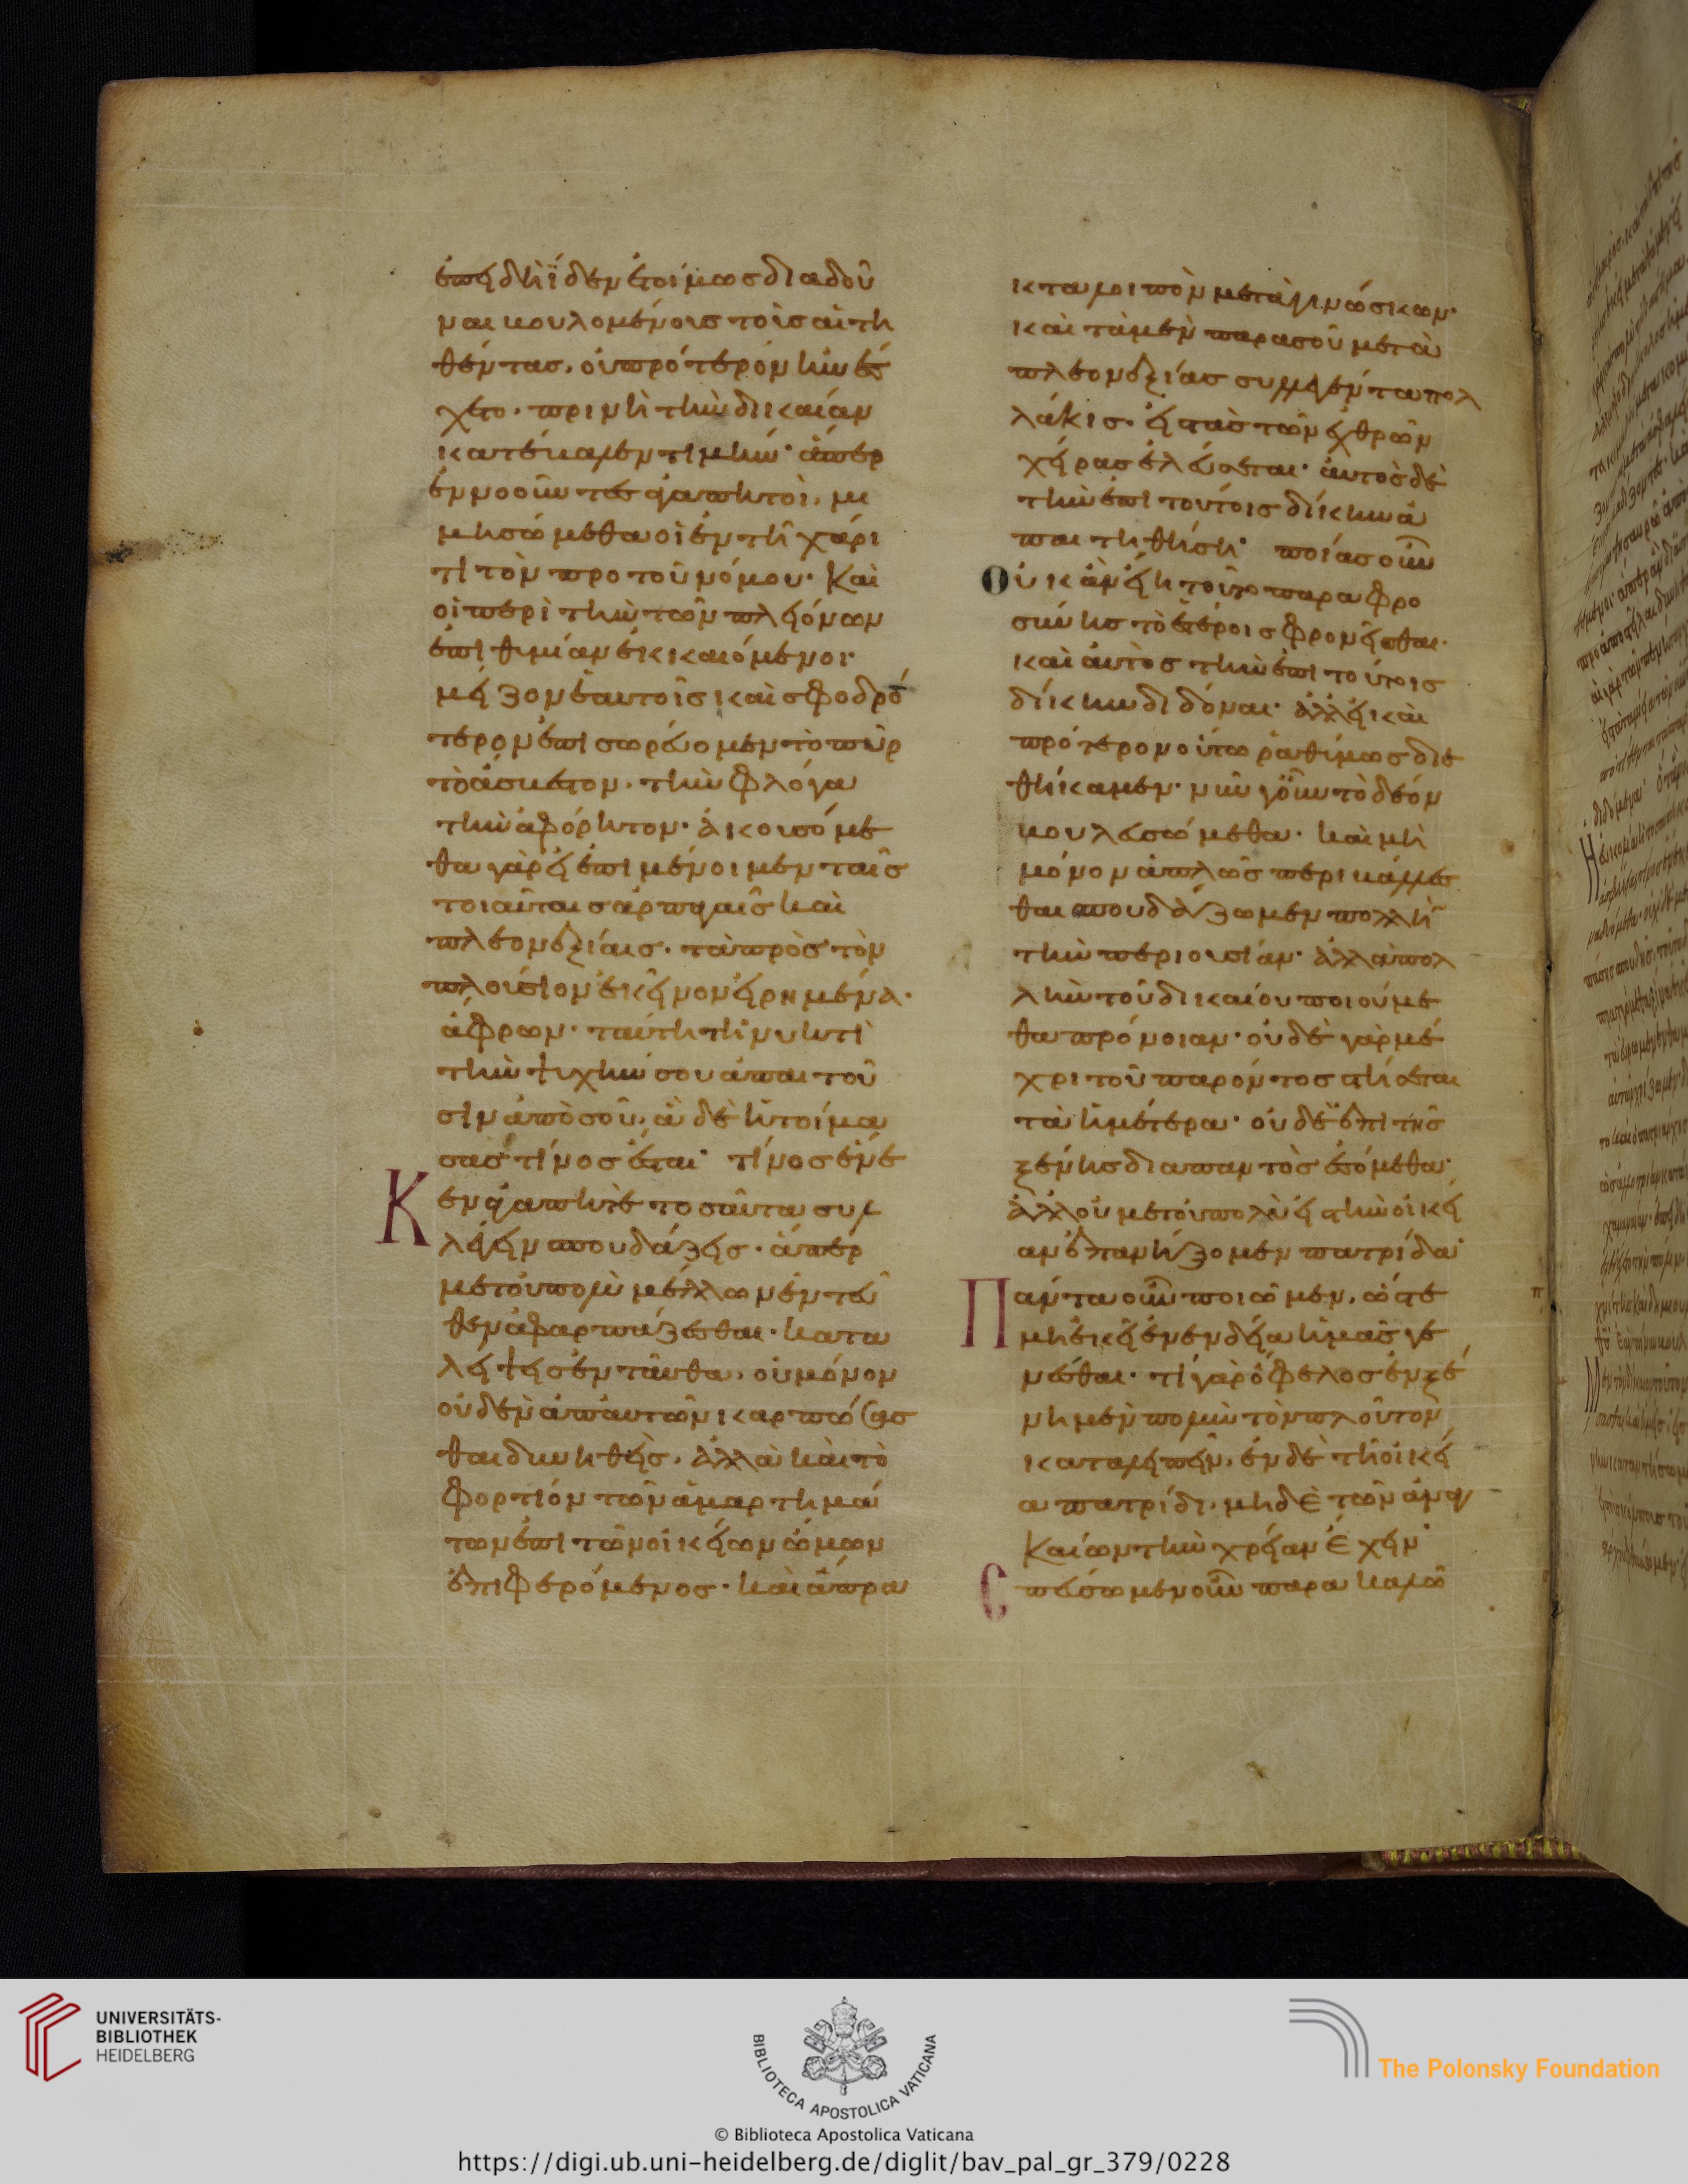 ἐπειδὴ ἴδεν ἑτοίμως διαδοῦ
ναι βουλομένοις τοῖς αἰτη
θέντας, οὐ πρότερον ἠνέσ
χετο· πρινὴ τὴν δικαίαν
κατέβαλεν τιμήν· ἅπερ
ἐννοοῦντες ἀγαπητοὶ, μι
μησώμεθα οἱ ἐν τῆ χάρι
τι τὸν προ τοῦ νόμου· Καὶ
οἱ περὶ τὴν τῶν πλειόνων
ἐπιθυμίαν ἐκκαιόμενοι·
μεῖζον ἑαυτοῖς καὶ σφοδρό
τερον ἐπισωρεύομεν τὸ πῦρ
τὸ ἄσβεστον· τὴν φλόγα
τὴν ἀφόρητον· ἀκουσόμε
θα γὰρ εἰ ἐπιμένοιμεν ταῖς
τοιαῦταις ἁρπαγαῖς καὶ
πλεονεξίαις· τὰ πρὸς τὸν
πλούσιον ἐκεῖνον εἰρημένα·
ἄφρων· ταύτη τῆ νυκτὶ
τὴν ψυχήν σου ἀπαιτοῦ
σιν ἀπὸ σοῦ, ἃ δὲ ἡτοίμα
σας τίνος ἔσται· τίνος ἕνε
Κεν ἀγαπητὲ τοσαῦτα συλ
λέγειν σπουδάζεις· ἅπερ
μετ' οὐπολὺ μέλλων ἐντεῦ
θεν ἀφαρπάζεσθαι· κατα
λείψεις ἐνταῦθα, οὐ μόνον
οὐδὲν ἀπ' αὐτῶν καρπώσασ
θαι δυνηθεὶς, ἀλλὰ καὶ τὸ
φορτίον τῶν ἁμαρτημά
των ἐπὶ τῶν οἰκείων ὤμων
ἐπιφερόμενος· καὶ ἄπρα
κτα λοιπὸν μεταγινώσκων·
καὶ τὰ μὲν παρα σοῦ μετὰ
πλεονεξίας συλλεγέντα πολ
λάκις· εἰς τὰς τῶν ἐχθρῶν
χεῖρας ἐλεύσεται· αὐτὸς δὲ
τὴν ἐπὶ τούτοις δίκην ἀ
παιτηθήση· ποίας οὖν
Οὐκ ἂν εἴη τοῦτο παραφρο
σύνης τὸ ἑτέροις φρονεῖσθαι·
καὶ αὐτὸς τὴν ἐπὶ τούτοις
δίκην διδόναι· ἀλλ' εἰ καὶ
πρότερον οὕτω ῥαθύμως διε
θήκαμεν· νῦν γοῦν τὸ δέον
βουλεσώμεθα· καὶ μὴ
μόνον ἁπλῶς περιβάλλεσ
θαι σπουδάζωμεν πολλὴ
τὴν περιουσίαν· ἀλλὰ πολ
λὴν τοῦ δικαίου ποιούμε
θα πρόνοιαν· οὐδὲ γὰρ μέ
χρι τοῦ παρόντος στήσεται
τὰ ἡμέτερα· οὐδὲ ἐπὶ τῆς
ξένης διαπαντὸς ἐσόμεθα·
ἀλλ' οὐ μετ' οὐπολὺ εἰς τὴν οἰκεί
αν ἐπανήξομεν πατρίδα·
Πάντα οὖν ποιῶμεν, ὥστε
μὴ ἐκεῖ ἐνενδεία ἡμᾶς γε
νέσθαι· τί γὰρ ὄφελος ἐν ξέ
νη μὲν πολὺν τὸν πλοῦτον
καταλειπεῖν, ἐν δὲ τῆ οἰκεί
α πατρίδι, μηδὲ τῶν ἀναγ
καίων τὴν χρείαν ἔχειν·
Σπεύσωμεν οὖν παρακαλῶ
UNIVERSITÄTS-
BIBLIOTHEK
HEIDELBERG
BIBLIOTECA APOSTOLICA VATICANA
The Polonsky Foundation
© Biblioteca Apostolica Vaticana
https://digi.ub.uni-heidelberg.de/diglit/bav_pal_gr_379/0228